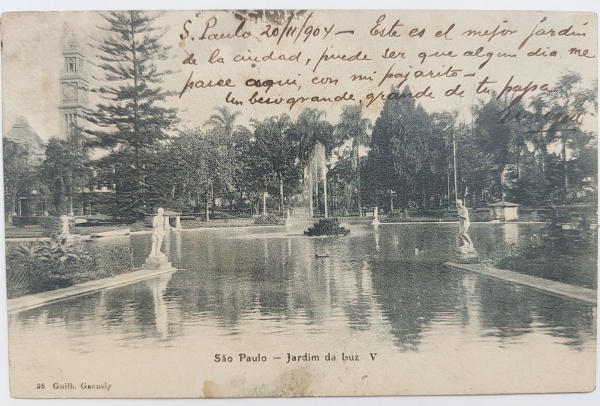 S. Paulo 20/11/904 — Este es el mejor jardin
de la ciudad, puede ser que algun dia me
pasee aqui, con mi pajarito —
Un beso grande, grande de tu papa
São Paulo — Jardim da Luz V
36 Guilh. Gaensly